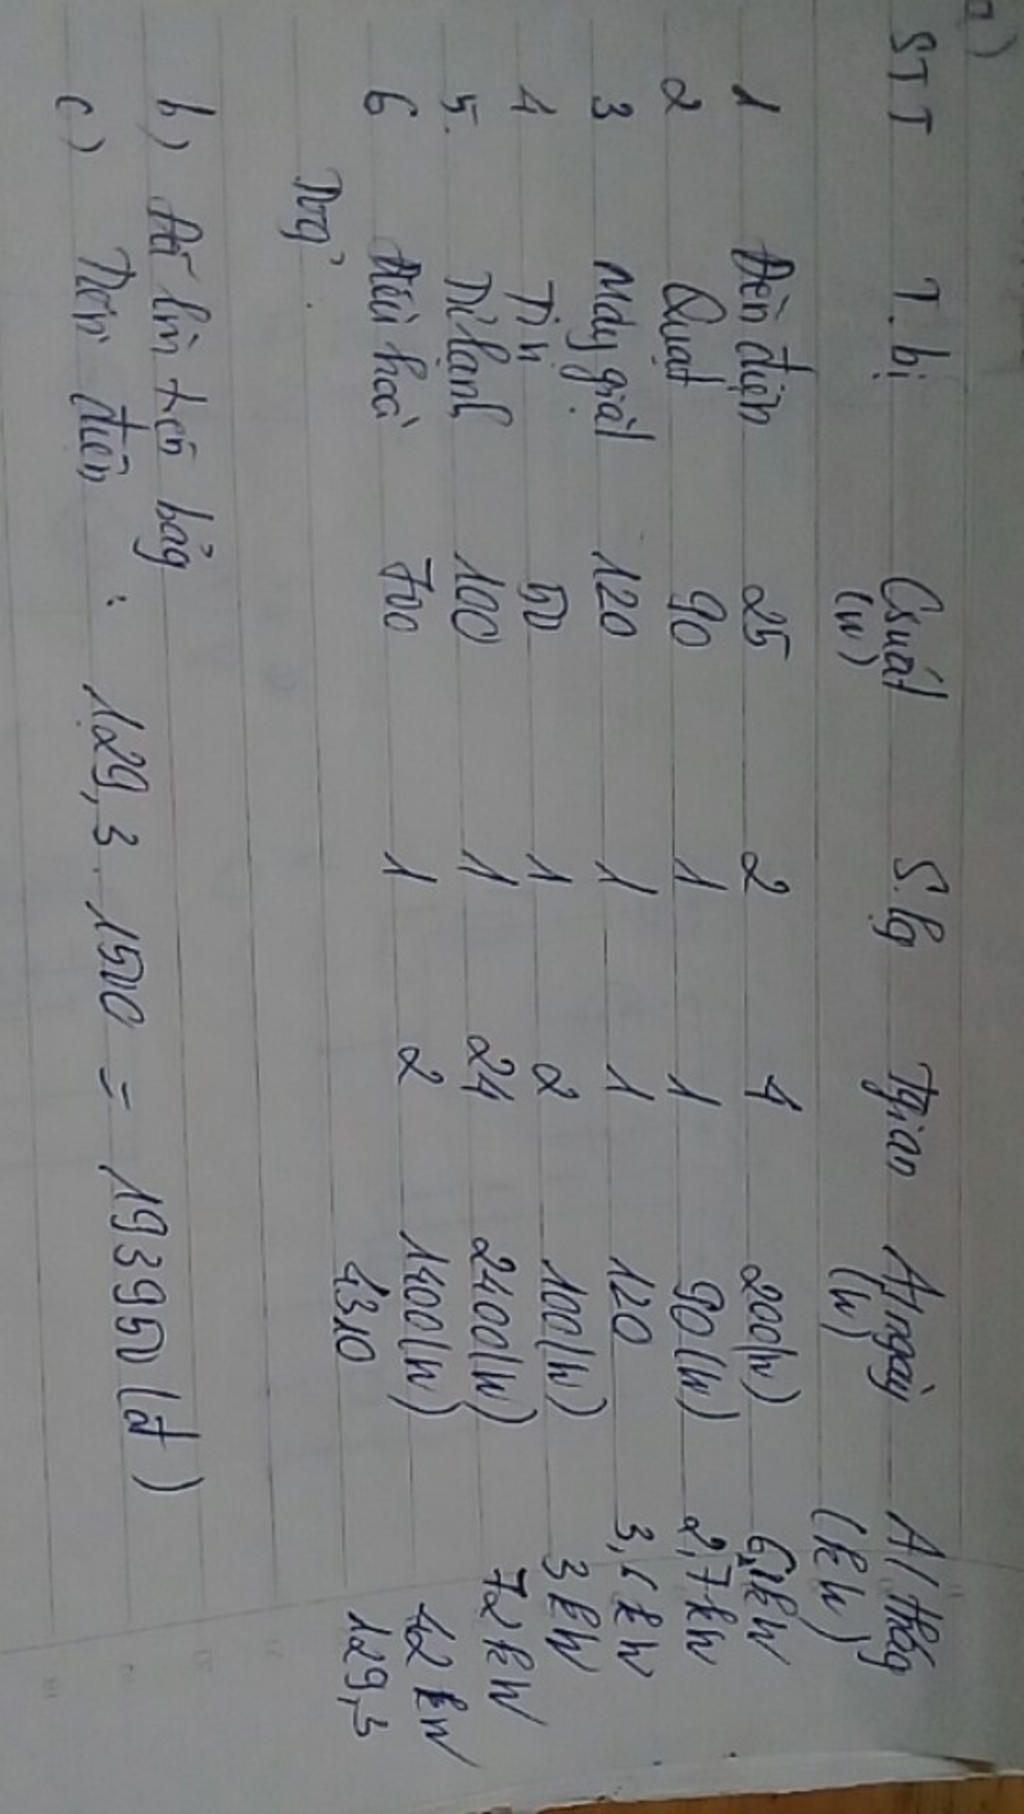 a)
STT T.bị Csuất (W) S.lg Tgian A/ngày (W) A/thág (kW)
1 Đèn điện 25 2 4 200(W) 6,kW
2 Quạt 90 1 1 90(W) 2,7kW
3 Máy giặt 120 1 1 120 3,6kW
4 Ti vi 50 1 2 100(W) 3kW
5. Tủ lạnh 100 1 24 2400(W) 72kW
6 Điều hoà 700 1 2 1400(W) 42kW
Tổg 4310 129,3
b) Đã lên trên bảg
c) Tiền điện : 129,3.1500 = 193950(đ)